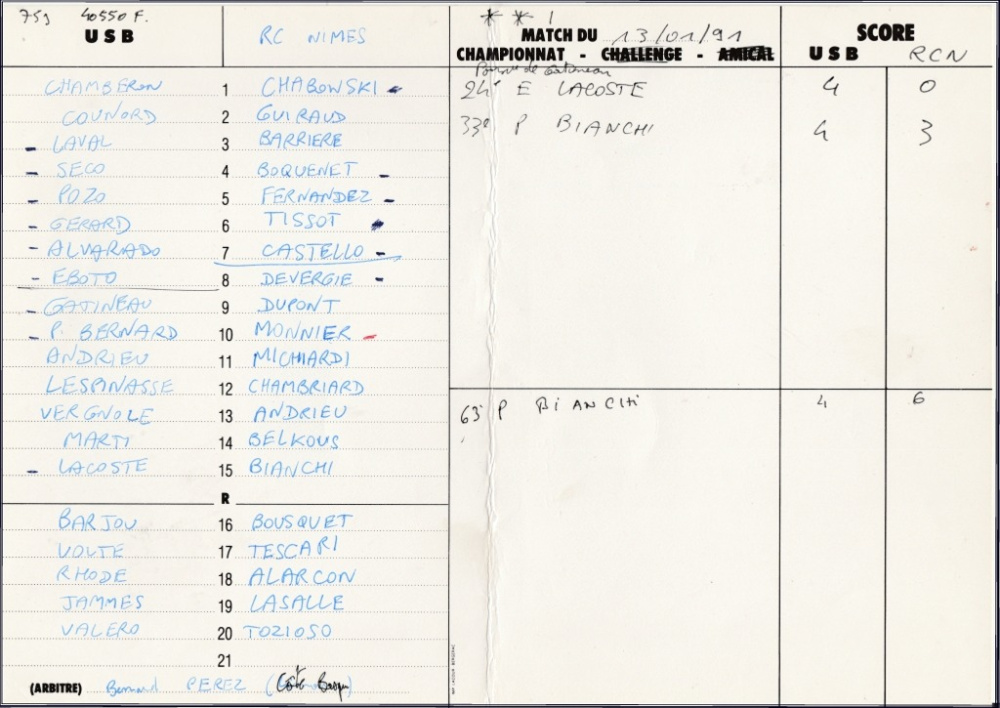 759 40550 F.
USB RC NIMES
CHAMBERON 1 CHABOWSKI
COUNORD 2 GUIRAUD
LAVAL 3 BARRIERE
SECO 4 BOQUENET
POZO 5 FERNANDEZ
GERARD 6 TISSOT
ALVARADO 7 CASTELLO
EBOTO 8 DEVERGIE
GATINEAU 9 DUPONT
P. BERNARD 10 MONNIER
ANDRIEU 11 MICHIARDI
LESPINASSE 12 CHAMBRIARD
VERGNOLE 13 ANDRIEU
MARTI 14 BELKOUS
LACOSTE 15 BIANCHI
R
BARJOU 16 BOUSQUET
VOLTE 17 TESCARI
RHODE 18 ALARCON
JAMMES 19 LASALLE
VALERO 20 TOZIOSO
21
(ARBITRE) Bernard PEREZ (Côte Basque)
* * 1
MATCH DU 13/01/91
CHAMPIONNAT - CHALLENGE - AMICAL
SCORE
USB RCN
de Gatineau
24' E LACOSTE 4 0
33' P BIANCHI 4 3
63' P BIANCHI 4 6